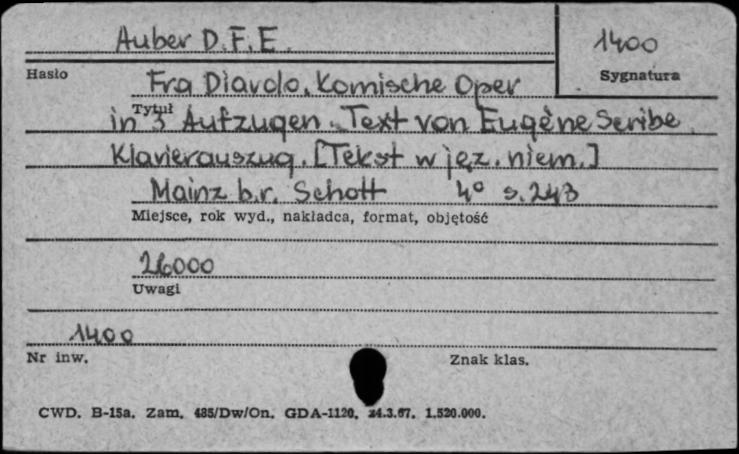 Auber D.F.E.
1400
Hasło
Sygnatura
Fra Diavolo. Komische Oper
Tytuł
in 3 Aufzugen. Text von Eugène Scribe.
Klavierauszug. [Tekst w jęz. niem.]
Mainz b.r. Schott 4° s. 243
Miejsce, rok wyd., nakładca, format, objętość
26000
Uwagi
1400
Nr inw.
Znak klas.
CWD. B-15a. Zam. 485/Dw/On. GDA-1120. 24.3.67. 1.520.000.